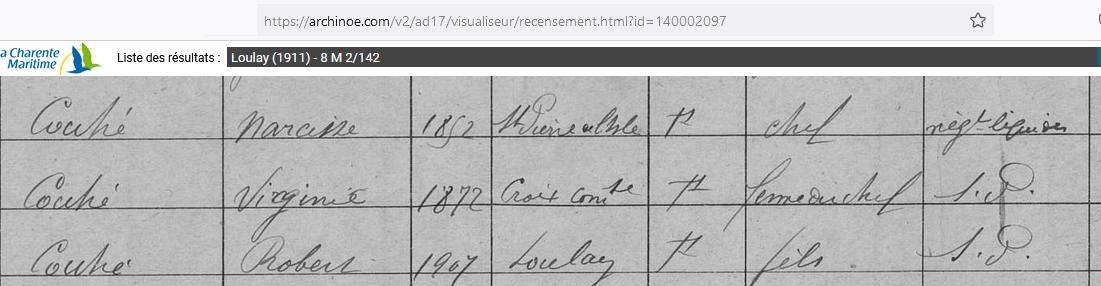 https://archinoe.com/v2/ad17/visualiseur/recensement.html?id=140002097
a Charente
Maritime
Liste des résultats : Loulay (1911) - 8 M 2/142
Couhé Narcisse 1852 St Pierre de l'Isle ft chef négt liquides
Couhé Virginie 1872 Croix comtsse ft femme du chef S.P.
Couhé Robert 1907 Loulay ft fils S.P.